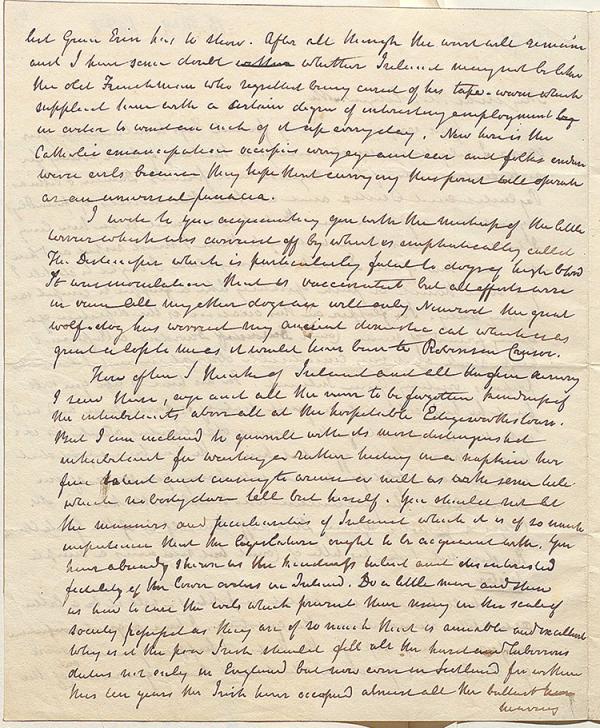 but Green Erin has to show. After all though the worst will remain
and I have some doubt whether Ireland may not be like
the old Frenchman who regretted being cured of his tape-worm which
supplied him with a certain degree of interesting employment
in order to wind an inch of it up every day. Now here is the
Catholic emancipation occupies every eye and ear and folks endure
worse evils because they hope that carrying this point will operate
as an universal panacea.
I wrote to you acquainting you with the mishap of the little
terrier which was carried off by what is emphatically called
The Distemper which is particularly fatal to dogs of high blood
It was inoculation that is vaccinated but all efforts were
in vain all my other dogs are well only Nimrod the great
wolf-dog has worried my ancient domestic cat which was
great a loss to me as it would have been to Robinson Crusoe.
How often I think of Ireland and all the fine scenery
I saw there, aye and all the never to be forgotten kindness of
the inhabitants, above all at the hospitable Edgeworthstown.
But I am inclined to quarrel with its most distinguished
inhabitant for wasting or rather hiding in a napkin her
fine talent and ceasing to amuse as well as
which nobody does half but herself. You should not let
the manners and peculiarities of Ireland which it is of so much
importance that the Legislature ought to be acquainted with. You
have already shown us the kindness talent and disinterested
fidelity of the lower orders in Ireland. Do a little more and show
us how to cure the evils which prevent their rising in the scale of
society possessed as they are of so much that is amiable and excellent
Why is it the poor Irish should fill all the hard and laborious
duties not only in England but now even in Scotland for within
this ten years the Irish have occupied almost all the